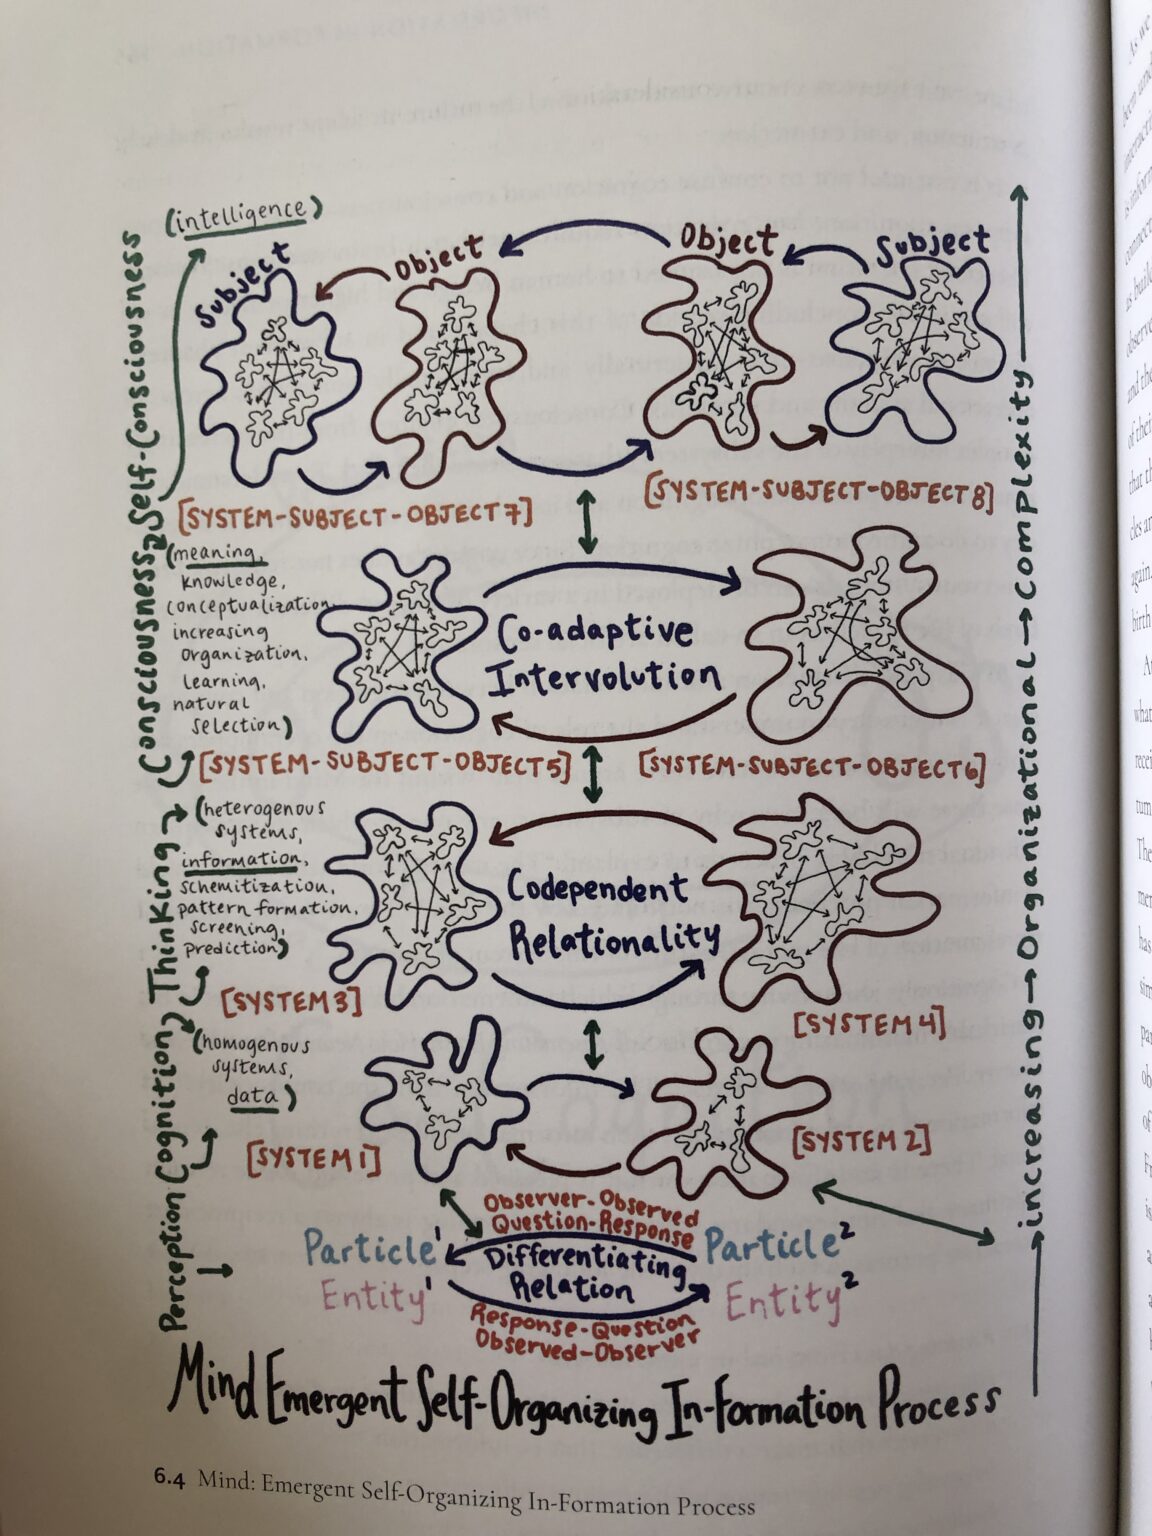 (intelligence)
Subject
Object
Object
Subject
[SYSTEM-SUBJECT-OBJECT 7]
[SYSTEM-SUBJECT-OBJECT 8]
Self-Consciousness
(meaning,
knowledge,
conceptualization,
increasing
organization,
learning,
natural
selection)
Consciousness
Co-adaptive
Intervolution
[SYSTEM-SUBJECT-OBJECT 5]
[SYSTEM-SUBJECT-OBJECT 6]
(heterogenous
systems,
information,
schemitization,
pattern formation,
screening,
prediction)
Thinking
Codependent
Relationality
[SYSTEM 3]
[SYSTEM 4]
(homogenous
systems,
data)
Cognition
[SYSTEM 1]
[SYSTEM 2]
Perception
Observer-Observed
Question-Response
Particle1
Differentiating
Relation
Particle2
Entity1
Entity2
Response-Question
Observed-Observer
increasing→Organizational→Complexity
Mind Emergent Self-Organizing In-Formation Process
6.4 Mind: Emergent Self-Organizing In-Formation Process